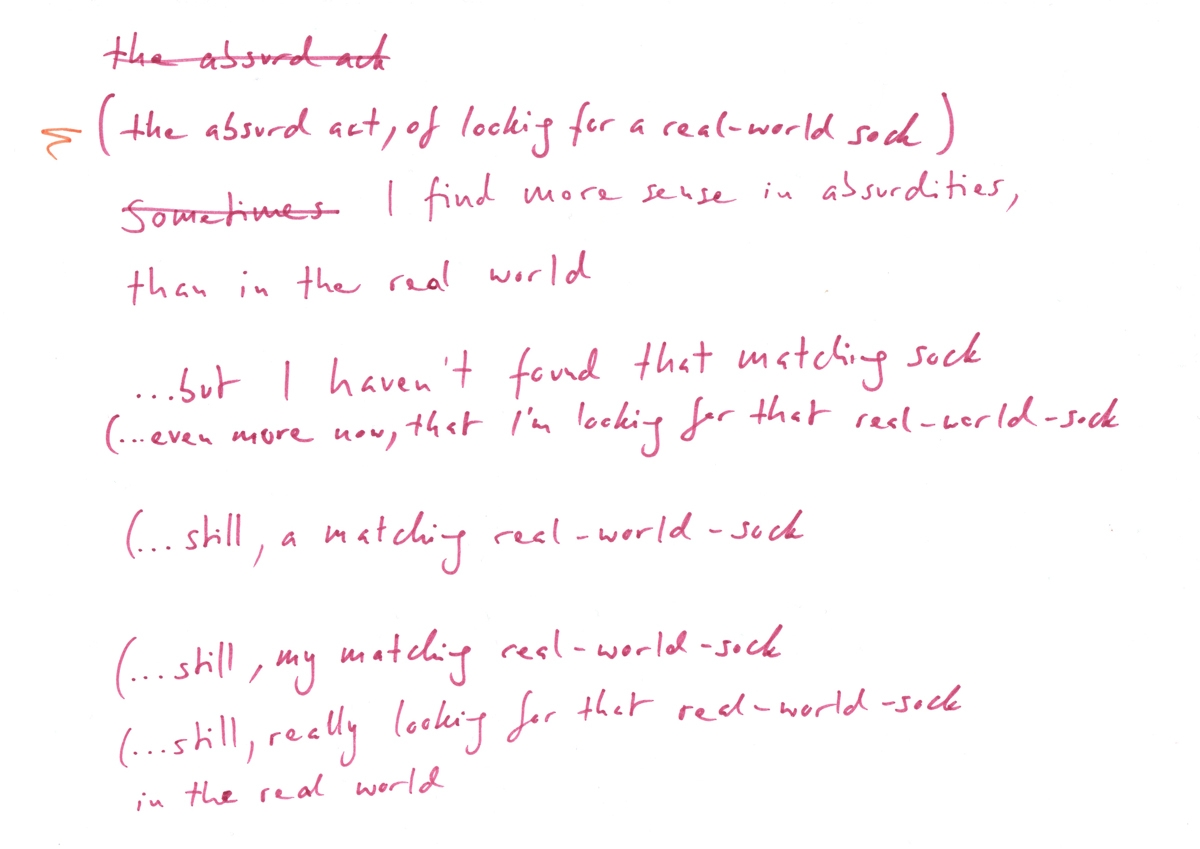 the absurd act
(the absurd act, of looking for a real-world sock)
Sometimes I find more sense in absurdities,
than in the real world
...but I haven't found that matching sock
(...even more now, that I'm looking for that real-world-sock
(...still, a matching real-world-sock
(...still, my matching real-world-sock
(...still, really looking for that real-world-sock
in the real world